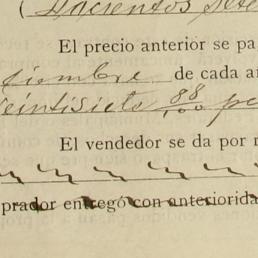 (Dacientos Sete
El precio anterior se pa
tiembre de cada añ
veintisiete 88/100 pe
El vendedor se da por r
prador entregó con anteriorida